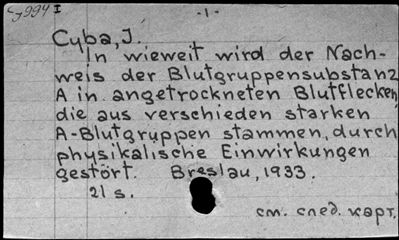 -1-
Cyba, J.
In wieweit wird der Nach-
weis der Blutgruppensubstanz
A in angetrockneten Blutflecken,
die aus verschieden starken
A-Blutgruppen stammen, durch
physikalische Einwirkungen
gestört. Breslau, 1933.
21 s.
см. след. карт.